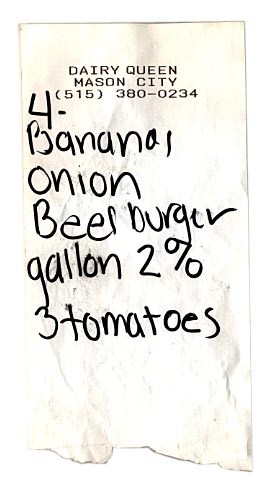 DAIRY QUEEN
MASON CITY
(515) 380-0234
4-
Bananas
onion
Beef burger
gallon 2%
3 tomatoes